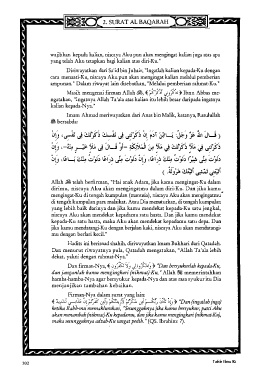 2. SURAT AL BAQARAH
wajibkan kepada kalian, niscaya Aku pun akan mengingat kalian juga atas apa
yang telah Aku tetapkan bagi kalian atas diri-Ku."
Diriwayatkan dari Sa'id bin Jubair, "Ingatlah kalian kepada-Ku dengan
cara mentaati-Ku, niscaya Aku pun akan mengingat kalian melalui pemberian
ampunan." Dalam riwayat lain disebutkan, "Melalui pemberian rahmat-Ku."
Masih mengenai firman Allah, ﴿ فَاذْكُرُونِي أَذْكُرْكُمْ ﴾ Ibnu Abbas me-
ngatakan, "Ingatnya Allah Ta'ala atas kalian itu lebih besar daripada ingatnya
kalian kepada-Nya."
Imam Ahmad meriwayatkan dari Anas bin Malik, katanya, Rasulullah
bersabda:
Allah telah berfirman, "Hai anak Adam, jika kamu mengingat-Ku dalam
dirimu, niscaya Aku akan mengingatmu dalam diri-Ku. Dan jika kamu
mengingat-Ku di tengah kumpulan (manusia), niscaya Aku akan mengingatmu
di tengah kumpulan para malaikat. Atau Dia menuturkan, di tengah kumpulan
yang lebih baik darinya dan jika kamu mendekat kepada-Ku satu jengkal,
niscaya Aku akan mendekat kepadamu satu hasta. Dan jika kamu mendekat
kepada-Ku satu hasta, maka Aku akan mendekat kepadamu satu depa. Dan
jika kamu mendatangi-Ku dengan berjalan kaki, niscaya Aku akan mendatangi-
mu dengan berlari kecil."
Hadits ini berisnad shahih, diriwayatkan Imam Bukhari dari Qatadah.
Dan menurut riwayatnya pula, Qatadah mengatakan, "Allah Ta'ala lebih
dekat, yakni dengan rahmat-Nya."
Dan firman-Nya, ﴿ وَاشْكُرُوا لِي وَلَا تَكْفُرُونِ ﴾ "Dan bersyukurlah kepada-Ku,
dan janganlah kamu mengingkari (nikmat)-Ku." Allah memerintahkan
hamba-hamba-Nya agar bersyukur kepada-Nya dan atas rasa syukur itu Dia
menjanjikan tambahan kebaikan.
Firman-Nya dalam surat yang lain:
"Dan (ingatlah juga)
ketika Rabb-mu memaklumkan, 'Sesungguhnya jika kamu bersyukur, pasti Aku
akan menambah (nikmat)-Ku kepadamu, dan jika kamu mengingkari (nikmat-Ku),
maka sesungguhnya adzab-Ku sangat pedih.'" (QS. Ibrahim: 7).
302